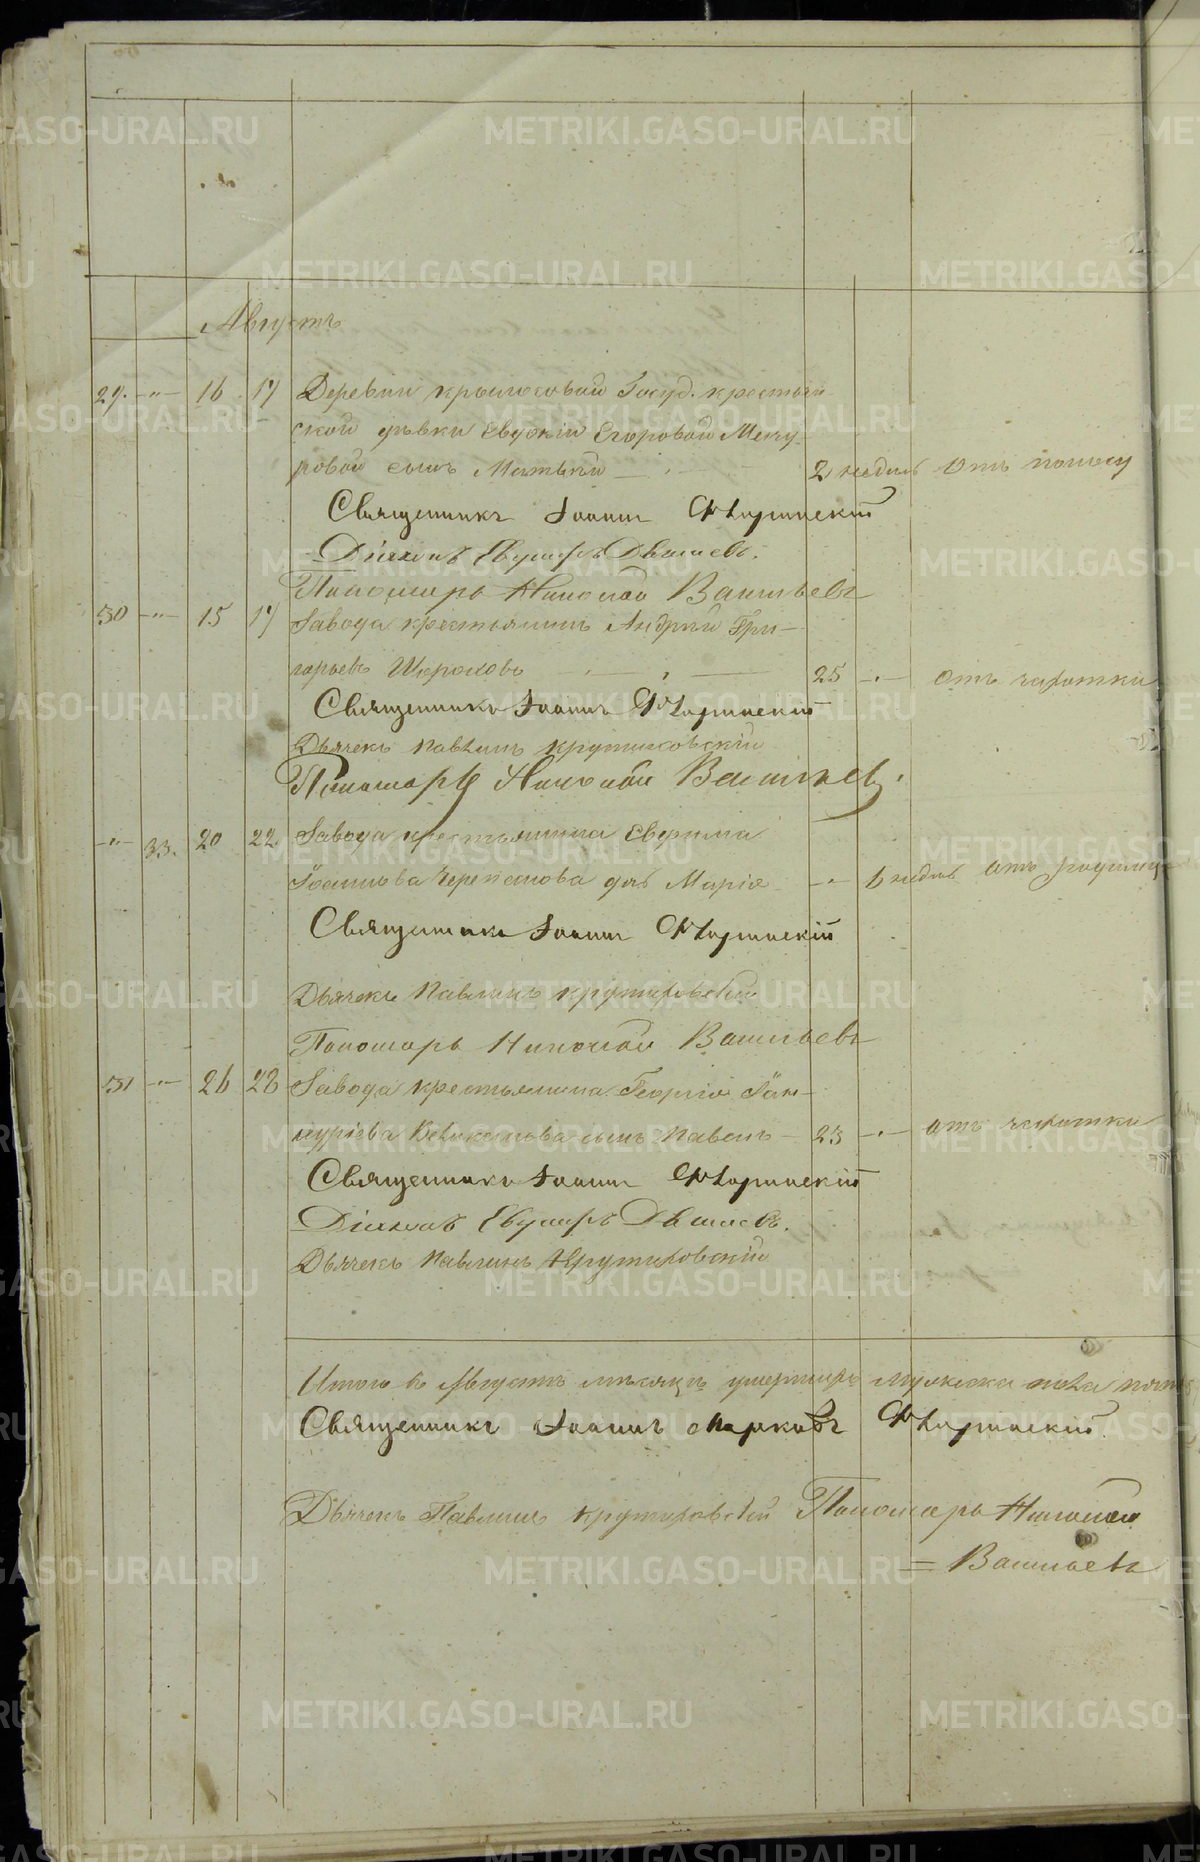 Августъ
29. -"- 16 17 Деревни Крылосовой Госуд. крестьян-
ской дѣвки Евдокіи Егоровой Меку-
ровой сынъ Матѳій 2 недель отъ поносу
Священникъ Іоаннъ Флоринскій
Діаконъ Евграфъ
Пономарь Николай Васильевъ
30 -"- 15 17 Завода крестьянинъ Андрей Гри-
горьевъ Широковъ 25 -"- отъ чахотки
Священникъ Іоаннъ Флоринскій
Дьячекъ Павлинъ Крутиховскій
Пономарь Николай Васильевъ.
-"- 33. 20 22. Завода крестьянина Евфима
Іоаннова Черепанова дочь Марія -"- 6 недель отъ родимца
Священникъ Іоаннъ Флоринскій
Дьячекъ Павлинъ Крутиховскій
Пономарь Николай Васильевъ
31 -"- 26 28 Завода крестьянина Георгія
Великанова сынъ Павелъ 23 -"- отъ чахотки
Священникъ Іоаннъ Флоринскій
Діаконъ Евграфъ
Дьячекъ Павлинъ Крутиховскій
Итого в Августѣ мѣсяцѣ умершихъ мужеска пола
Священникъ Іоаннъ Марковъ Флоринскій
Дьячекъ Павлинъ Крутиховскій Пономарь Николай
= Васильевъ
METRIKI.GASO-URAL.RU